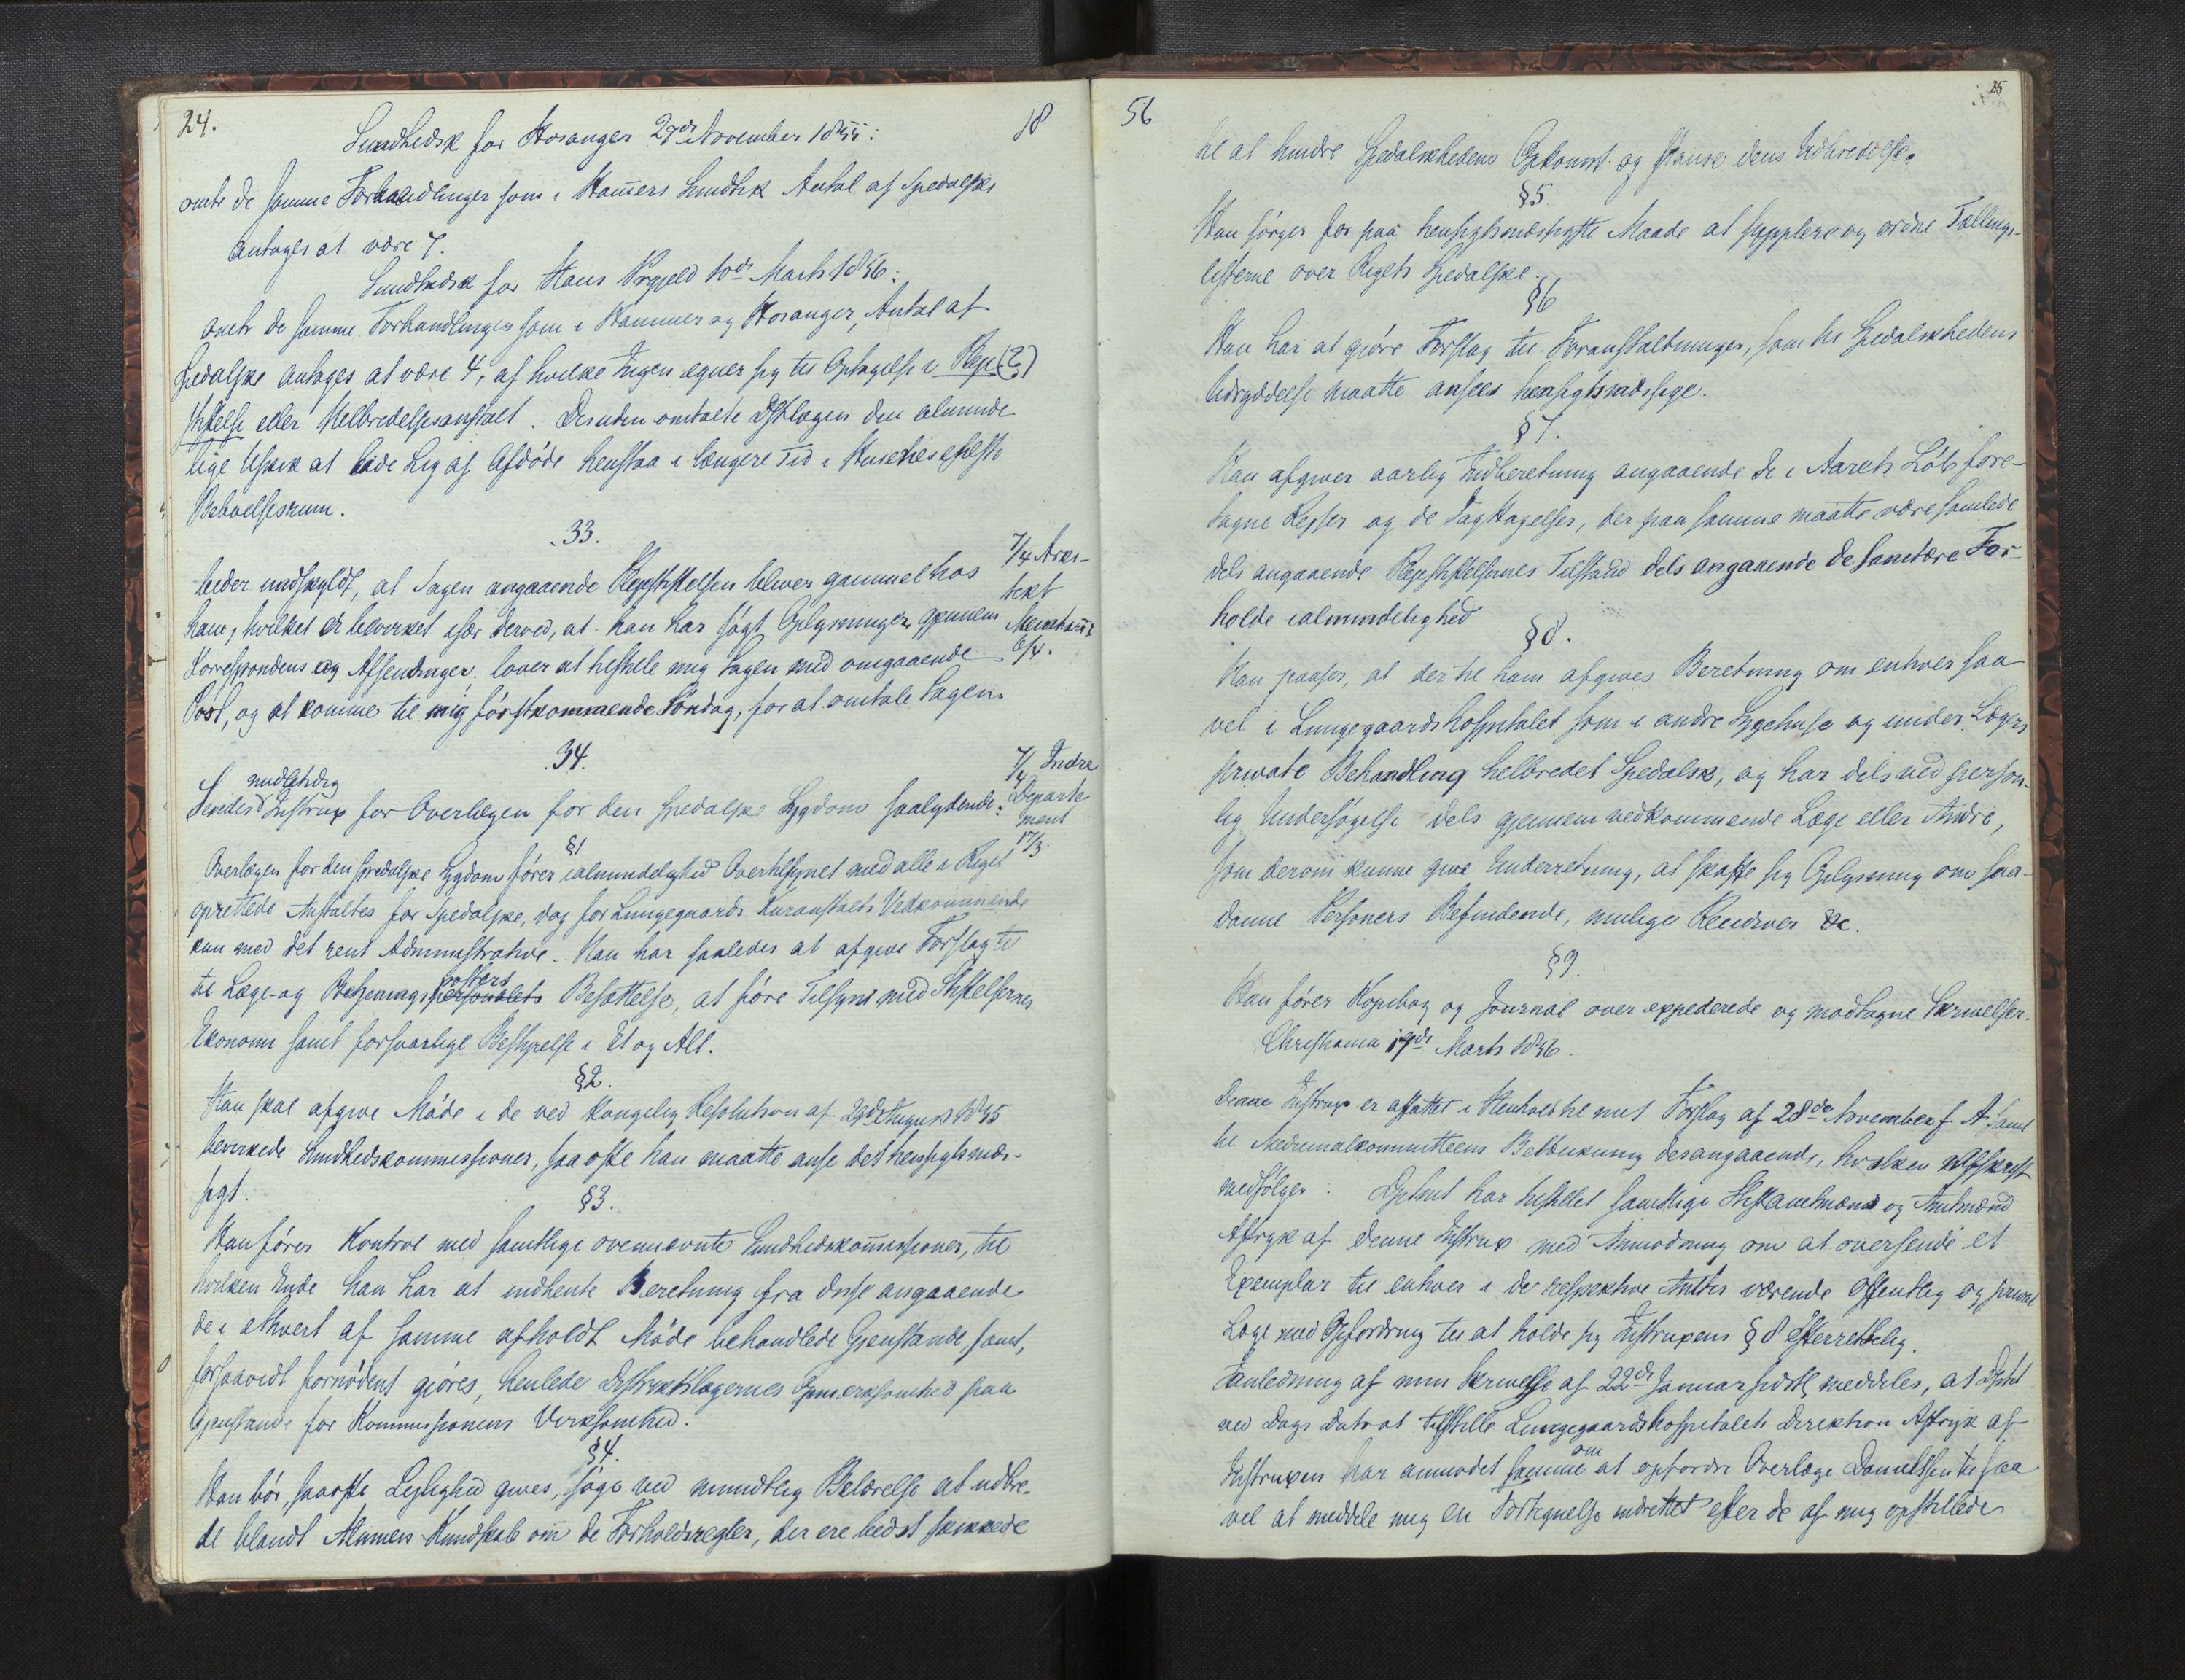 24.
18
Sundhedsk for Hosanger 27de November 1855:
omtr de samme Forhandlinger som i Hamers Sundhk Antal af Spedalske
antages at være 7.
Sundhedsk for Haus Prgjeld 10de Marts 1856:
omtr de samme Forhandlinger som i Hammer og Hosanger, Antal af
Spedalske antages at være 4, af hvilke Ingen egner sig til Optagelse i Pleje (?)
stiftelse eller Helbredelsesanstalt. Desuden omtalte Dstlægen den alminde
lige Uskik at lade Lig af Afdøde henstaa i længere Tid i Husenes
Beboelsesrum.
33.
7/4 Arki-
tekt
6/4.
beder undskyldt, at Sagen angaaende Plejestiftelsen bliver gammel hos
ham, hvilket er bevirket især derved, at han har søgt Oplysninger gjennem
Korrespondens og Afsendinger. lover at tilstille mig Sagen med omgaaende
Post, og at komme til mig førstkommende Søndag, for at omtale Sagen.
34.
7/4 Indre
Departe-
ment
17/3.
midlertidig
Sendes Instrux for Overlægen for den spedalske Sygdom saalydende:
§1
Overlægen for den spedalske Sygdom fører ialmindelighed Overtilsynet med alle i Riget
oprettede Anstalter for Spedalske, dog for Lungegaards Kuranstalts Vedkommende
kun med det rent Administrative. Han har saaledes at afgive Forslag til
posters
til Læge- og Betjeningspersonalets Besættelse, at føre Tilsyn med Stiftelsernes
Ekonomi samt forsvarlige Bestyrelse i Et og Alt.
§2.
Han skal afgive Møde i de ved Kongelig Resolution af 29de August 1855
bevirkede Sundhedskommissioner, saa ofte han maatte anse det hensigtsmæs-
sigt.
§3.
Han fører Kontrol med samtlige ovennævnte Sundhedskommissioner, til
hvilken Ende han har at indhente Beretning fra disse angaaende
de i ethvert af samme afholdt Møde behandlede Gjenstande, samt,
forsaavidt fornødent gjøres, henlede Distriktslægernes Opmerksomhed paa
Gjenstande for Kommissionens Virksomhed.
§4.
Han bør, saaofte Leylighed gives, søge ved mundtlig Belærelse at udbre-
de blandt Almuen Kundskab om de Forholdsregler, der ere bedst skikkede
56
25
til at hindre Spedalskhedens Opkomst og standse dens Udbredelse.
§5
Han sørger for paa hensigtsmæssigste Maade at supplere og ordne Tællings-
listerne over Rigets Spedalske.
§6
Han har at gjøre Forslag til Foranstaltninger, som til Spedalskhedens
Udryddelse maatte ansees hensigtsmæssige.
§7.
Han afgiver aarlig Indberetning angaaende de i Aarets Løb fore-
tagne Rejser og de Iagttagelser, der paa samme maatte være samlede
dels angaaende Plejestiftelsernes Tilstand dels angaaende de sanitære For-
holde ialmindelighed
§8.
Han paaser, at der til ham afgives Beretning om enhver saa
vel i Lungegaardshospitalet som i andre Sygehuse og under Lægers
private Behandling helbredet Spedalsk, og har dels ved person-
lig Undersøgelse dels gjennem vedkommende Læge eller Andre,
som derom kunne give Underretning, at skaffe sig Oplysning om saa-
danne Personers Befindende, mulige Recidiver &c.
§9.
Han fører Kopibog og Journal over expederede og modtagne Skrivelser.
Christiania 17de Marts 1856.
Denne Instrux er affattet i Henhold til mit Forslag af 28de November f A samt
til Medicinalkommitteens Betænkning desangaaende, hvilken i Afskrift
medfølger. Dptmt har tilstillet samtlige Stiftamtmænd og Amtmænd
Aftryk af denne Instrux med Anmodning om at oversende et
Exemplar til enhver i de respektive Amter værende offentlig og privat
Læge med Opfordring til at holde sig Instruxens § 8 efterrettelig.
I Anledning af min Skrivelse af 22de Januar sidstl meddeles, at Dptet
ved Dags Dato at tilstille Lungegaardshospitalets Direktion Aftryk af
om
Instruxen har anmodet samme at opfordre Overlæge Danielssen til saa
vel at meddele mig en Fortegnelse indrettet efter de af mig opstillede